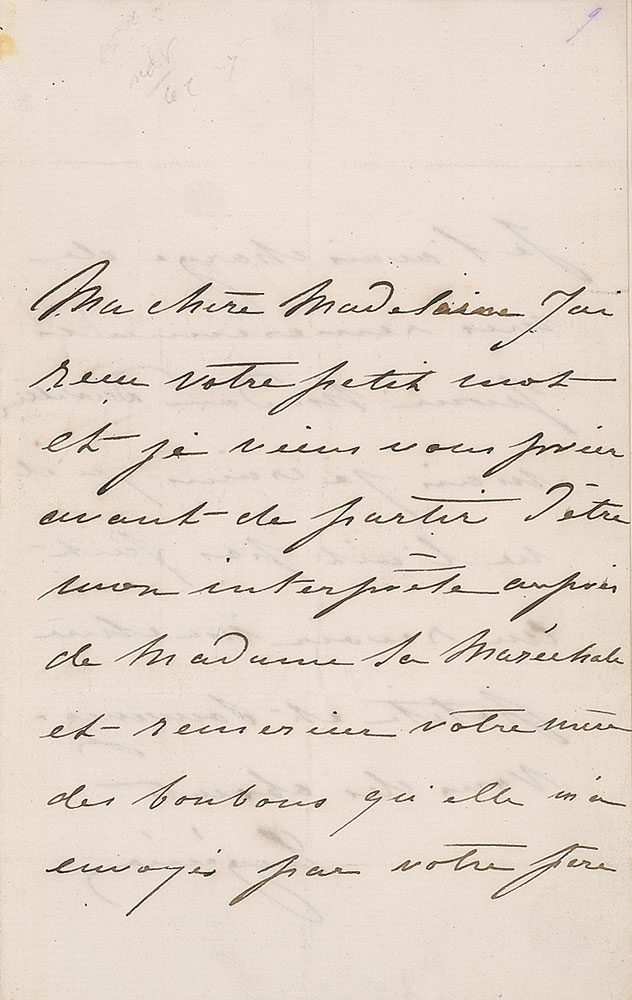 9
Ma chère Madeleine J'ai
reçu votre petit mot
et je viens vous prier
avant de partir d'être
mon interprète auprès
de Madame la Maréchale
et remercier votre mère
des bonbons qu'elle m'a
envoyés par votre père